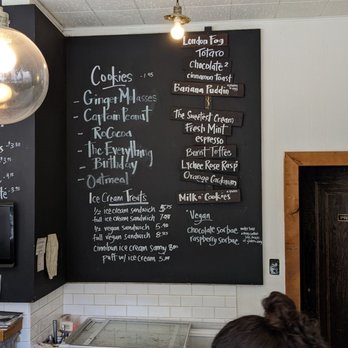 Cookies - 1.95
- Ginger Molasses
- Captain Peanut
- RoCocoa
- The Everything
Birthday
- Oatmeal
Ice Cream Treats
1/2 ice cream sandwich 5.75
full ice cream sandwich 7.00
1/2 vegan sandwich 5.
full vegan sandwich 8.
cinnibun ice cream sammy 8.00
puff w/ ice cream 5.
London Fog
Totaro
Chocolate²
cinnamon toast
Banana Puddin'
The Sweetest Cream
Fresh Mint
espresso
Burnt Toffee
Lychee Rose Rasp
Orange Cardamom
Milk n' Cookies
Vegan
chocolate sorbae
raspberry sorbae